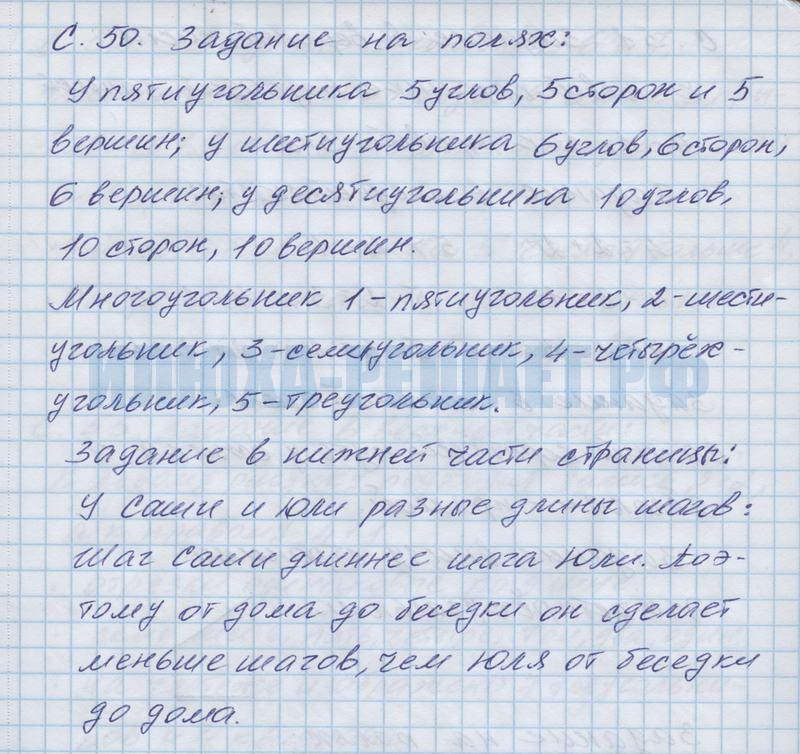 С. 50. Задание на полях:
У пятиугольника 5 углов, 5 сторон и 5
вершин; у шестиугольника 6 углов, 6 сторон,
6 вершин; у десятиугольника 10 углов,
10 сторон, 10 вершин.
Многоугольник 1 - пятиугольник, 2 - шести-
угольник, 3 - семиугольник, 4 - четырёх-
ИЛЮХА-РЕШАЕТ.РФ
угольник, 5 - треугольник.
Задание в нижней части страницы:
У Саши и Юли разные длины шагов:
шаг Саши длиннее шага Юли. Поэ-
тому от дома до беседки он сделает
меньше шагов, чем Юля от беседки
до дома.